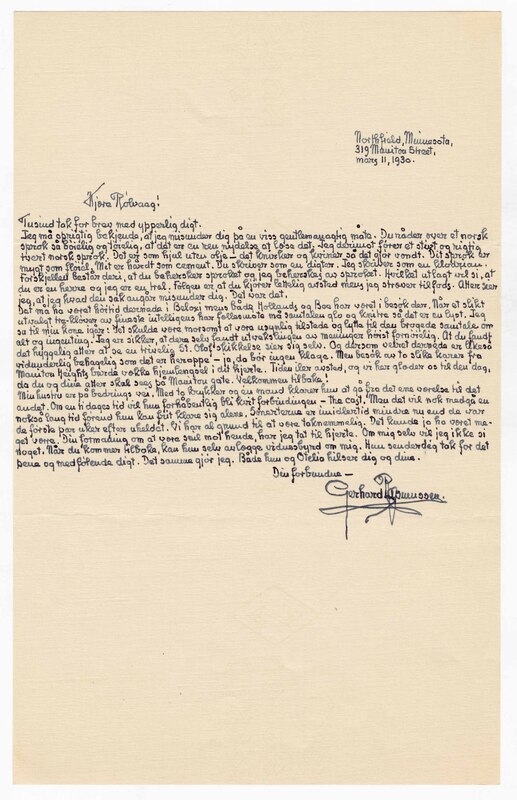 Northfield, Minnesota,
319 Manitou Street,
mars 11, 1930.
Kjære Rölvaag!
Tusind tak for brev med ypperlig digt.
Jeg må oprigtig bekjende, at jeg misunder dig på en viss gentlemanagtig måte. Du råder over et norsk
sprok så böielig og töielig, at det er en ren nydelse at læse det. Jeg derimot förer et stivt og rigtig
tvert norsk sprok. Det er som hjul uten olje – det knirker og hviner så det gjör vondt. Dit sprok er
mygt som flöiel. Mit er hårdt som cement. Du skriver som en digter. Jeg skriver som en
Forskjellen består deri, at du behersker sproket og jeg beherskes av sproket. Hvilket utlagt vil si, at
du er en herre og jeg er en træl. Fölgen er at du kjörer lettelig avsted mens jeg stræver tilfods. Atter ser
jeg, at jeg hvad den sak angår misunder dig. Det var det.
Det må ha været höitid dernede i Biloxi mens både Hollands og Boe har været i besök der. Når et slikt
utvalgt tre-klöver av fineste intelligens har fællesmöte må samtalen glo og knitre så det er en lyst. Jeg
sa til min kone igår: Det skulde være morsomt at være usynlig tilstede og lytte til den brogede samtale om
alt og ingenting. Jeg er sikker, at dere selv fandt utvekslingen av meninger höist fornöielig. At du fandt
det hyggelig atter at se en trivelig St. Olaf skikkelse sier sig selv. Og dersom veiret dernede er likeså
vidunderlig behagelig som det er heroppe – ja, da bör ingen klage. Men besök av to slike karer fra
Manitou Heights burde vække hjemlengsel i dit hjerte. Tiden iler avsted, og vi her glæder os til den dag,
da du og dine atter skal sees på Manitou gate. Velkommen tilbake!
Min hustru er på bedrings vei. Med to krykker og en mand klarer hun at gå fra det ene værelse til det
andet. Om en ti dages tid vil hun forhåbentlig bli kvit forbindingen – the cast. Men det vil nok medgå en
nokså lang tid förend hun kan fuldt klare sig alene. Smerterne er imidlertid mindre nu end de var
de förste par uker efter uheldet. Vi har al grund til at være taknemmelig. Det kunde jo ha været me-
get værre. Din formaning om at være snil mot hende, har jeg tat til hjerte. Om mig selv vil jeg ikke si
noget. Når du kommer tilbake, kan hun selv avlægge vidnesbyrd om mig. Hun sender deg tak for det
pene og medfölende digt. Det samme gjör jeg. Både hun og Otelia hilser dig og dine.
Din forbundne –
Gerhard Rasmussen.